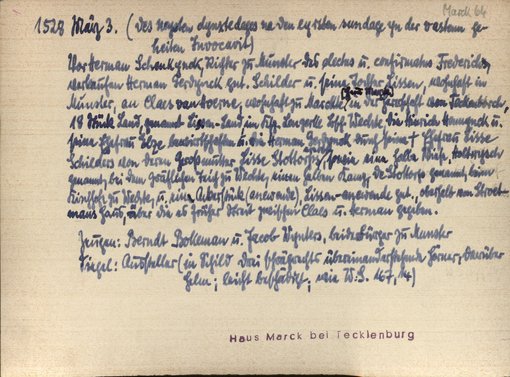 March 64
1528 März 3. (des nexsten dynxtedages na den ersten sundage yn der vastenn ge-
heiten Invocavit)
Vor Herman Schenkynck, Richter zu Münster des electus u. confirmatus Frederich,
verkaufen Herman Gerdynck gnt. Schilder u. seine Tochter Lissen, wohnhaft in
Münster, an Claes van Hoerne, wohnhaft zu Marck, in der Herrschaft von Teckenborch,
18 Stücke Land, genannt Lissen-Land im Ksp. Lengerke
seine Ehefrau Ilze bewirtschaften u. die Herman Gerdynck durch seine † Ehefrau Lisse
Schilders von deren Großmutter Lisse Stoltorps sowie eine halbe Wiese
genannt, bei dem gräflichen Teich zu Wechte, einen halben Kamp, de Stoltorp genannt, beim
Kirchhof zu Wechte, u. eine Ackerstück (anewende), Lissen-anewende gnt., oberhalb von Stroet-
mans Haus, über die es früher Streit zwischen Claes u. Herman gegeben.
Zeugen: Berndt Bolleman u. Jacob Wynters, beide Bürger zu Münster
Siegel: Aussteller (im Schild drei schrägrechts übereinanderstehende Hörner, darüber
Helm; leicht beschädigt, wie W.S. 167, 14)
Haus Marck bei Tecklenburg